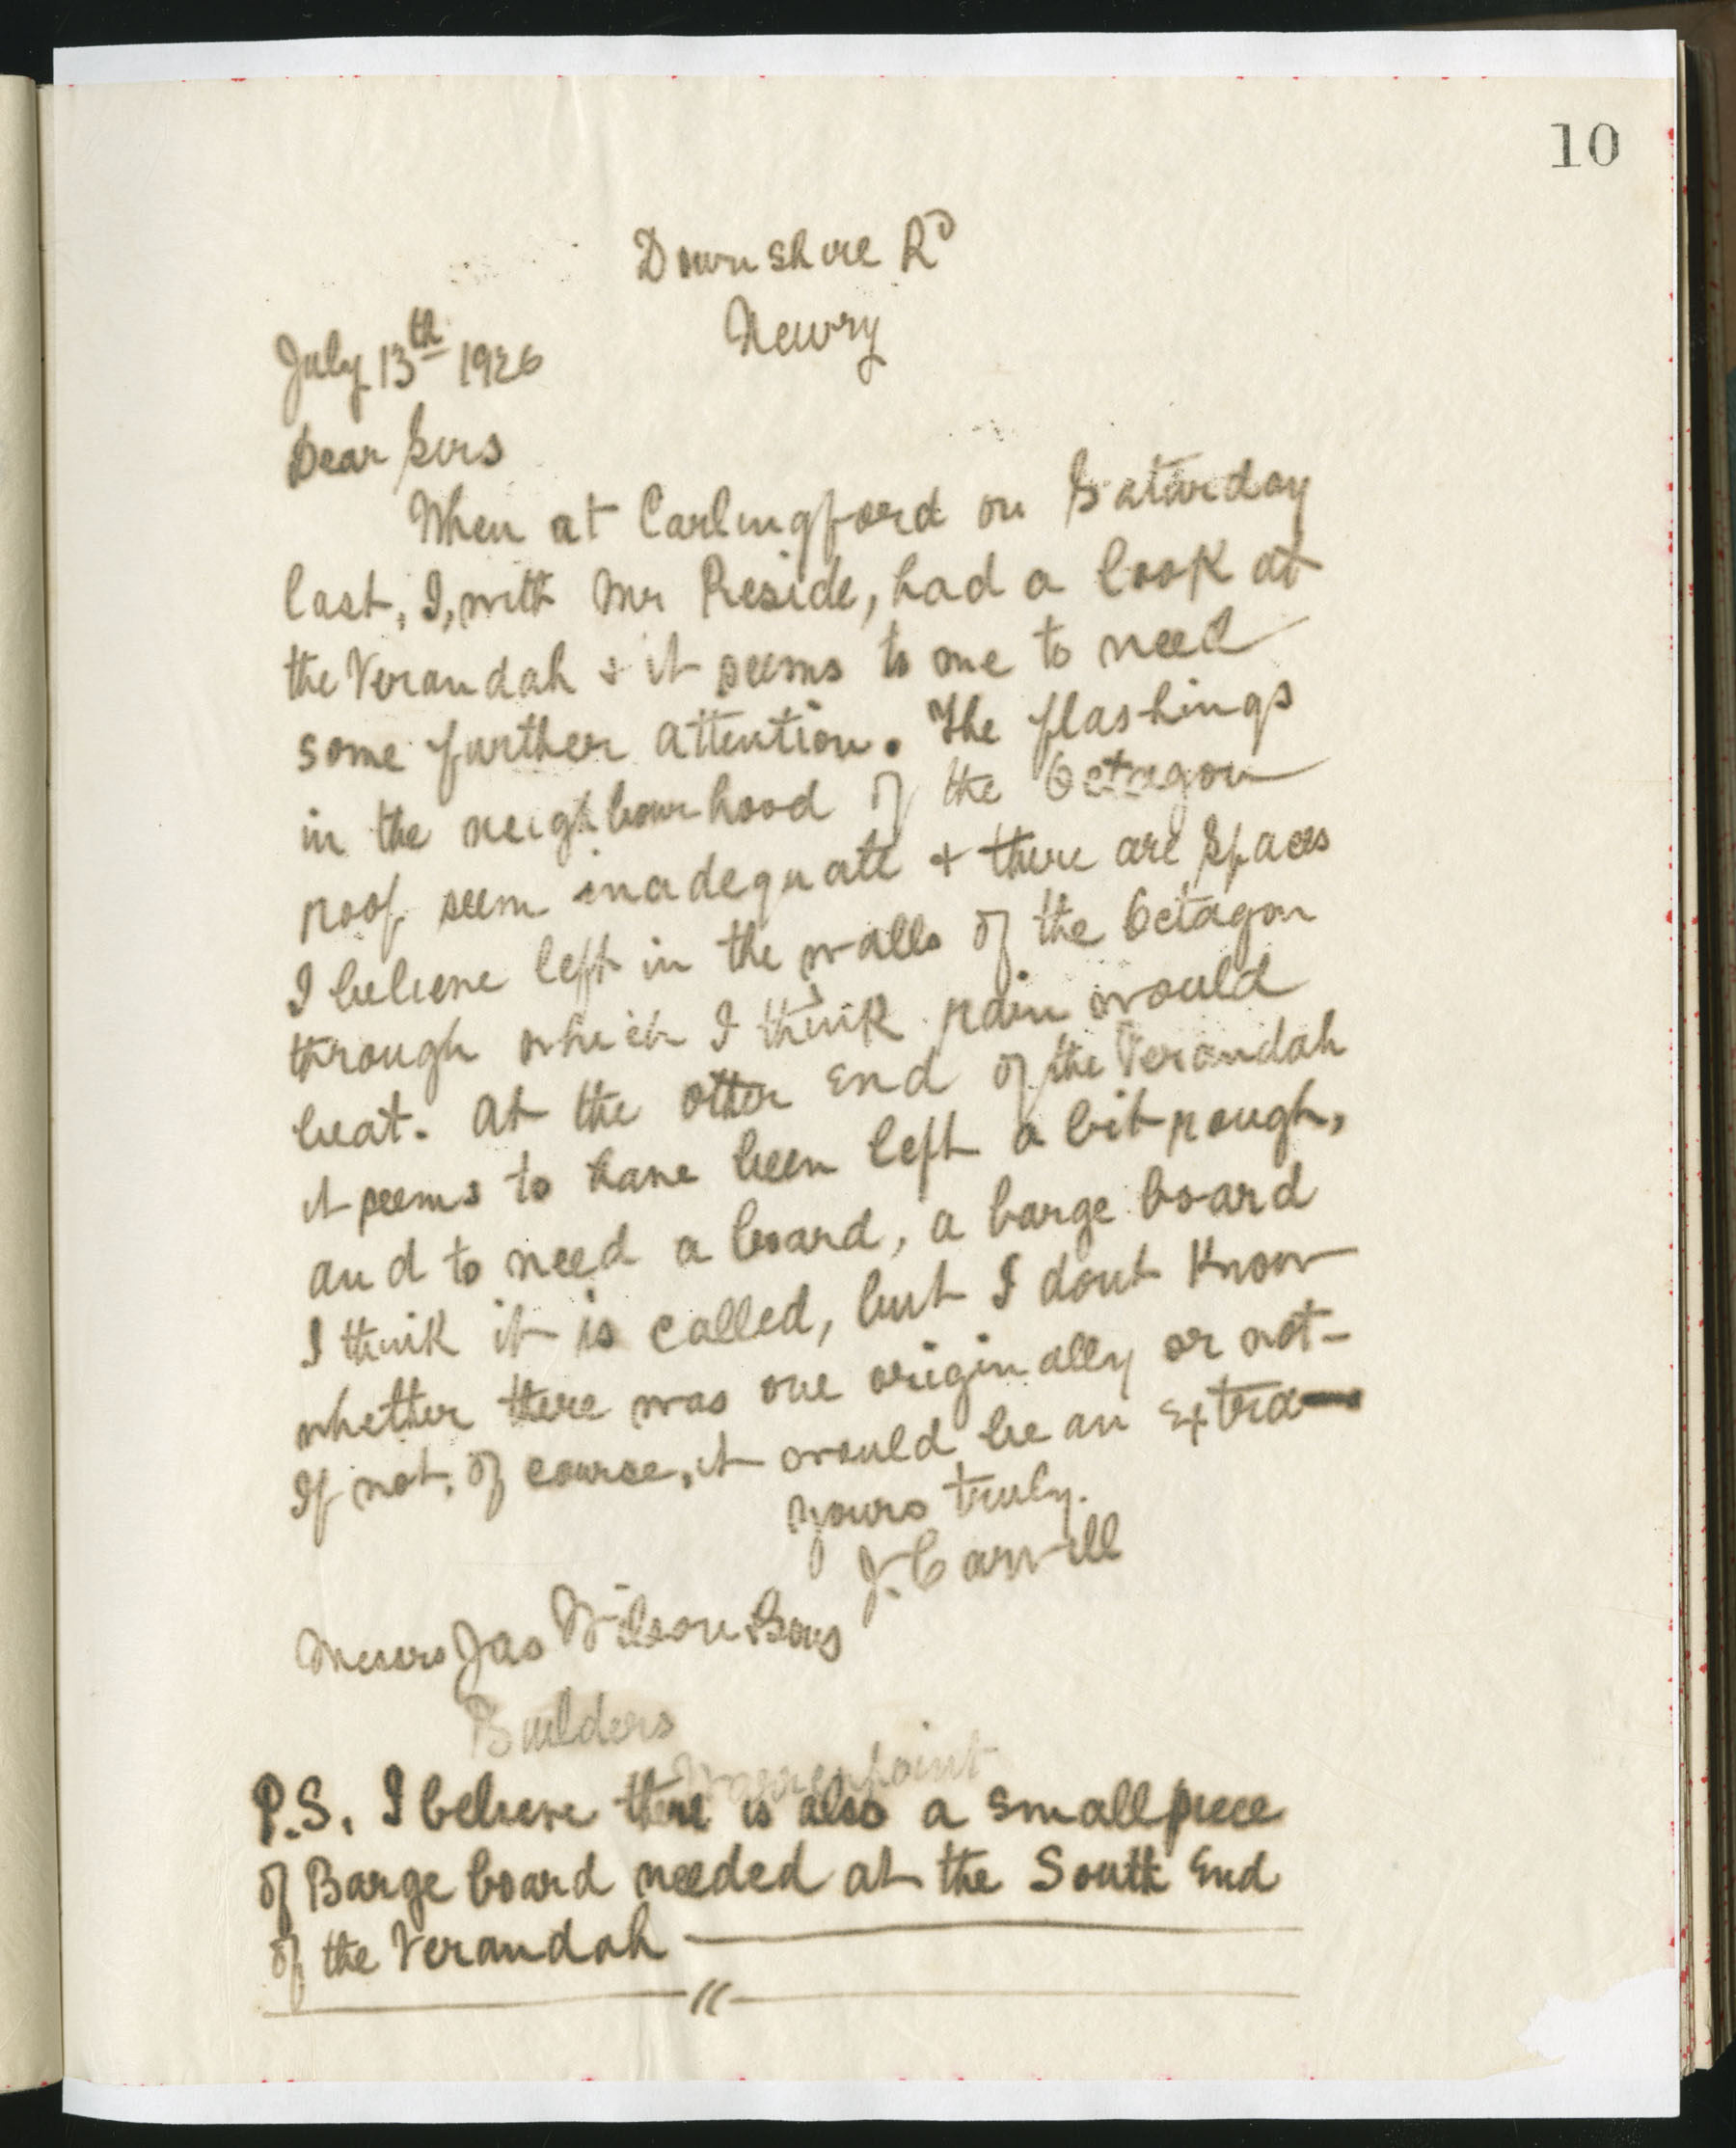 10
Downshire Rd
Newry
July 13th 1926
Dear Sirs
When at Carlingford on Saturday
last, I, with Mr Reside, had a look at
the Verandah & it seems to me to need
some further attention. The flashings
in the neighbourhood of the Octagon
roof seem inadequate & there are spaces
I believe left in the walls of the Octagon
through which I think rain would
beat. At the other end of the Verandah
it seems to have been left a bit rough,
and to need a board, a barge board
I think it is called, but I dont know
whether there was one originally or not-
If not, of course, it would be an extra—
Yours truly.
J. Carvill
Messrs Jas Wilson & Sons
Builders
Warrenpoint
P.S. I believe there is also a small piece
of Barge board needed at the South End
of the Verandah —